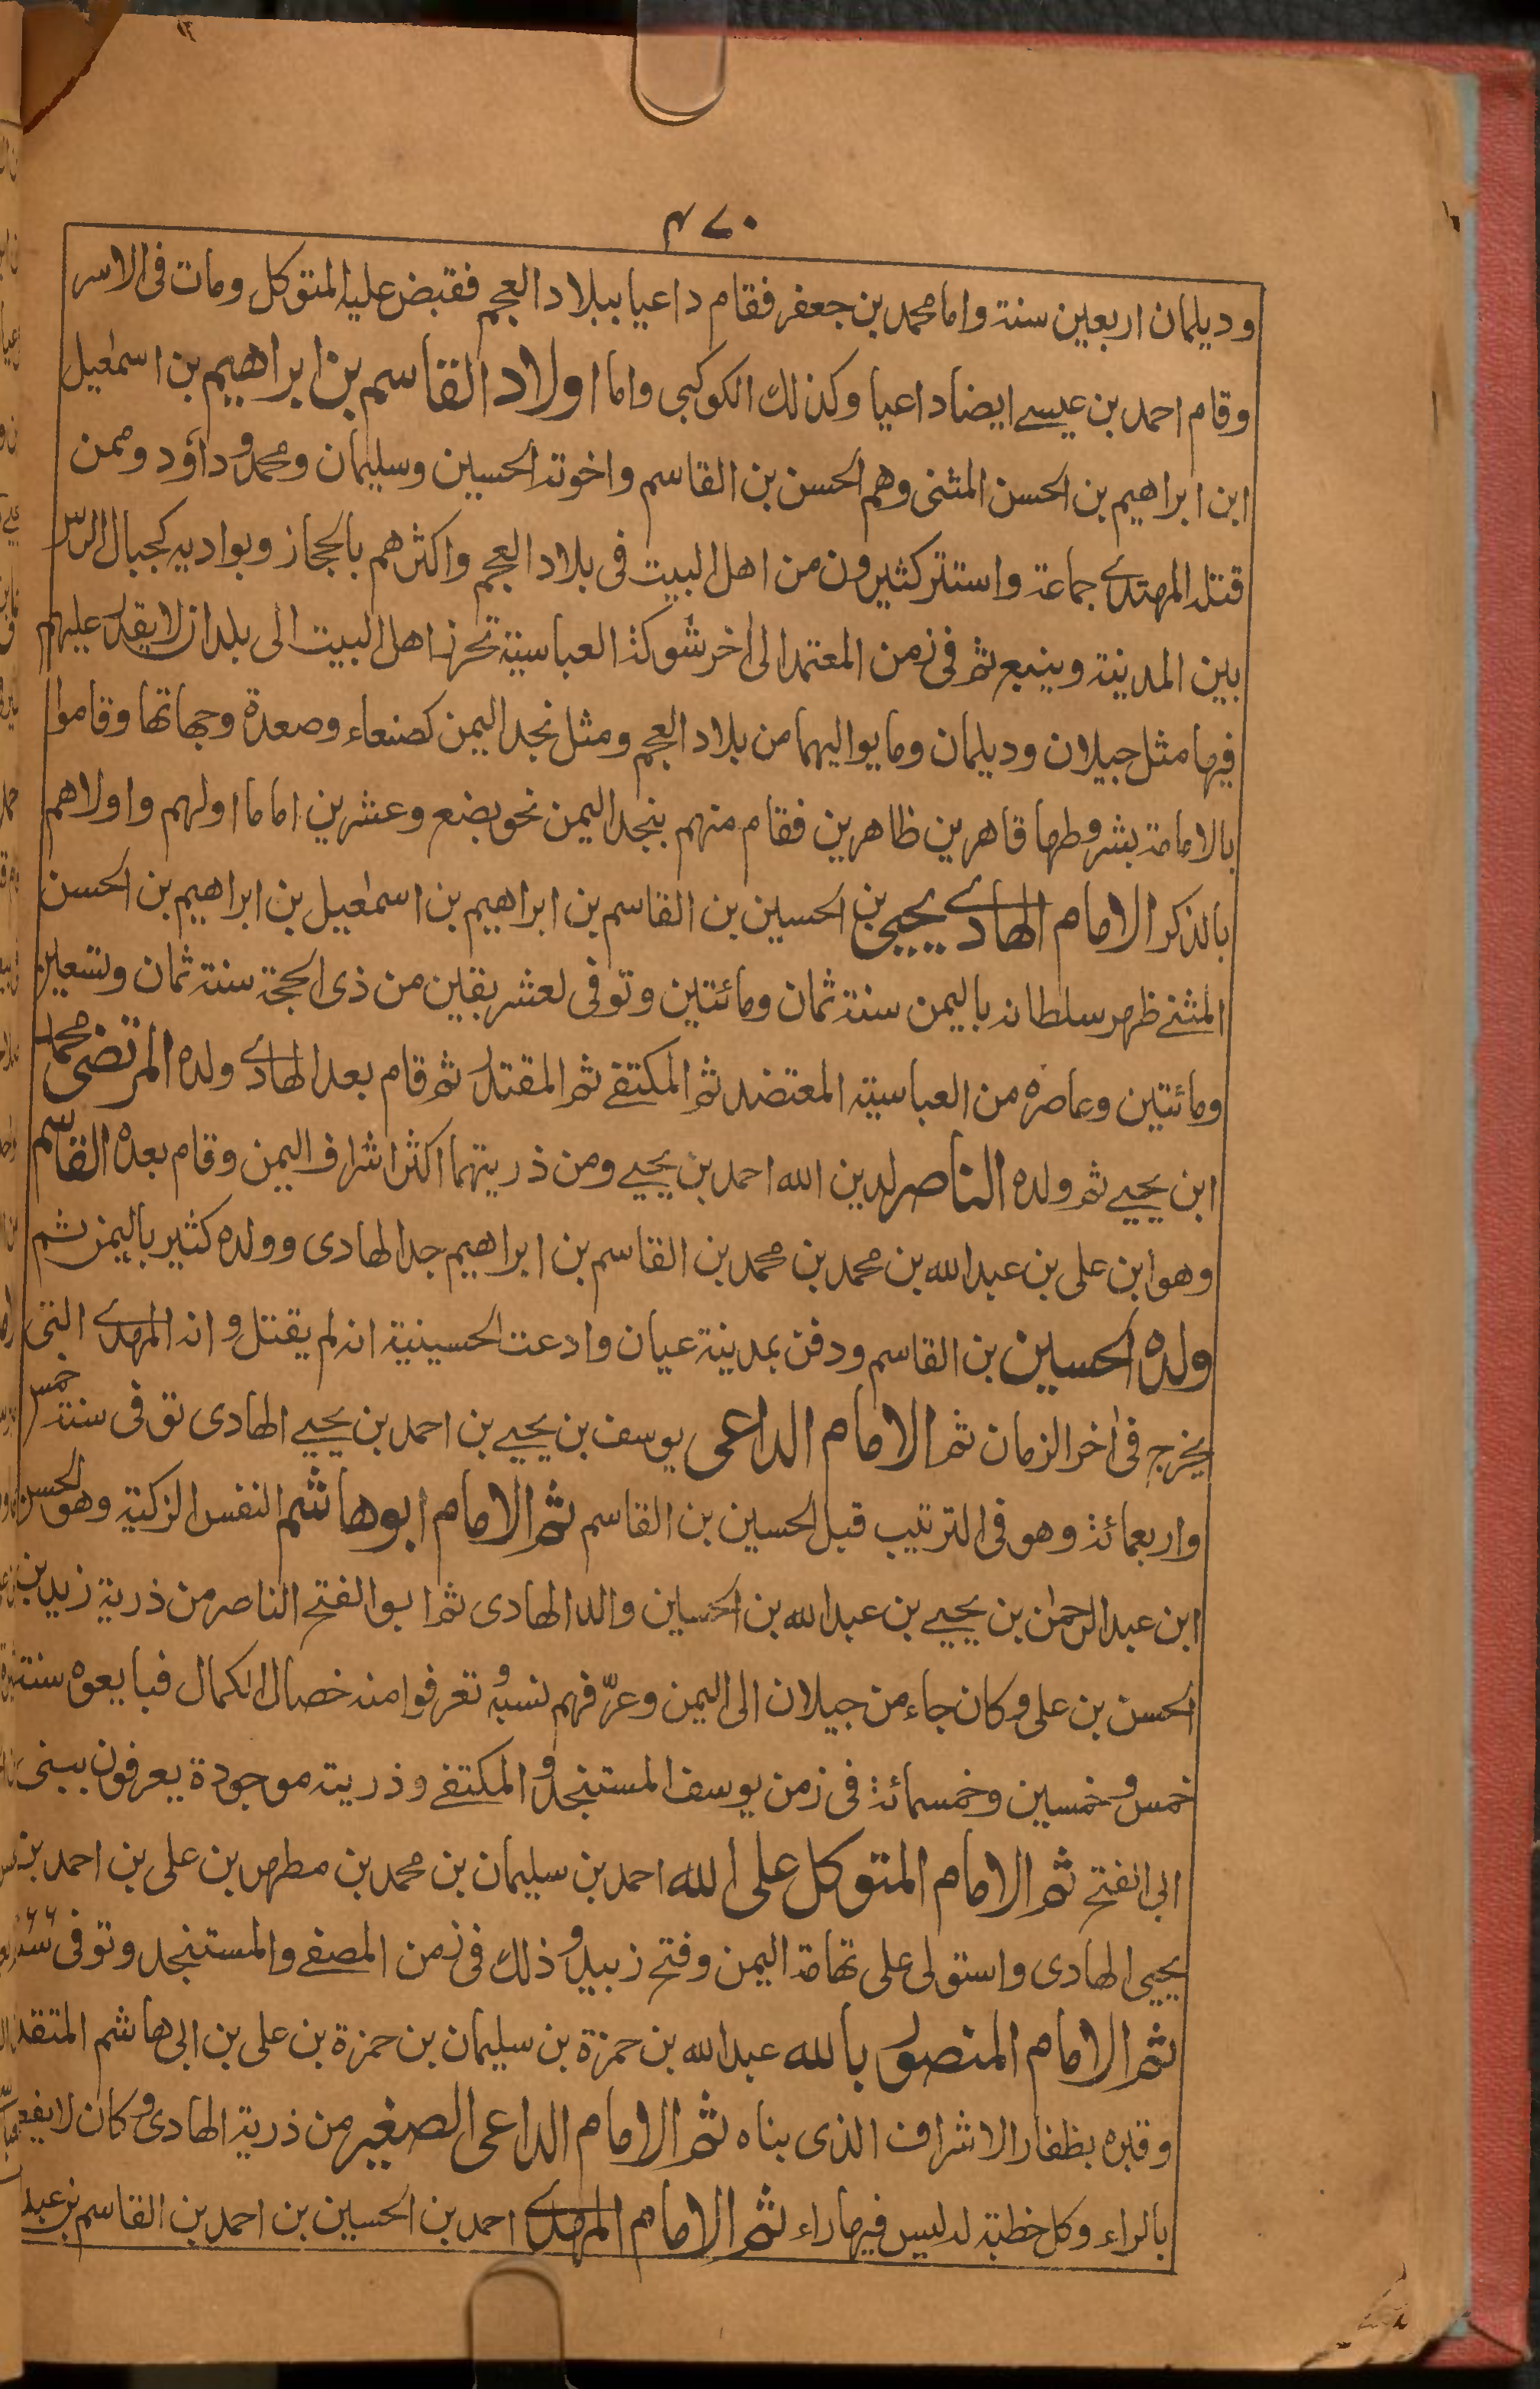 ٤٧٠
وديلمان اربعين سنة واما محمد بن جعفر فقام داعيا ببلاد العجم فقبض عليه المتوكل ومات فى الاسر
وقام احمد بن عيسے ايضا داعيا وكذلك الكوكبى واما اولاد القاسم بن ابراهيم بن اسمٰعيل
ابن ابراهيم بن الحسن المثنى وهم الحسن بن القاسم واخوته الحسين وسليمان ومحمد وداؤد وممن
قتله المهتدے جماعة واستتر كثيرون من اهل البيت فى بلاد العجم واكثرهم بالحجاز وبواديه كجبال الرس
بين المدينة وينبع ثم فى زمن المعتمد الى اٰخر شوكة العباسية تحرز اهل البيت الى بلدان لا يقدر عليهم
فيها مثل جيلان وديلمان وما يواليهما من بلاد العجم ومثل نجد اليمن كصنعاء وصعدة وجهاتها وقاموا
بالامامة بشروطها قاهرين ظاهرين فقام منهم بنجد اليمن نحو بضع وعشرين اماما اولهم واولاهم
بالذكر الامام الهادے يحيى بن الحسين بن القاسم بن ابراهيم بن اسمٰعيل بن ابراهيم بن الحسن
المثنے ظهر سلطانه باليمن سنة ثمان ومائتين وتوفى لعشر بقين من ذى الحجة سنة ثمان وتسعين
ومائتين وعاصره من العباسية المعتضد ثم المكتفے ثم المقتدر ثم قام بعد الهادے ولده المرتضى محمد
ابن يحيے ثم ولده الناصر لدين الله احمد بن يحيے ومن ذريتهما اكثر اشراف اليمن وقام بعده القاسم
وهو ابن على بن عبد الله بن محمد بن محمد بن القاسم بن ابراهيم جد الهادى وولده كثير باليمن ثم
ولده الحسين بن القاسم ودفن بمدينة عيان وادعت الحسينية انه لم يقتل وانه المهدے التى
يخرج فى اٰخر الزمان ثم الامام الداعى يوسف بن يحيے بن احمد بن يحيے الهادى توفى سنة خمس
واربعمائة وهو فى الترتيب قبل الحسين بن القاسم ثم الامام ابوهاشم النفس الزكية وهو الحسن
ابن عبد الرحمٰن بن يحيے بن عبد الله بن الحسين والد الهادى ثم ابو الفتح الناصر من ذرية زيد بن
الحسن بن على وكان جاء من جيلان الى اليمن وعرّفهم نسبه وتعرفوا منه خصال الكمال فبايعوه سنة
خمس وخمسين وخمسمائة فى زمن يوسف المستنجد والمكتفے وذريته موجودة يعرفون ببنى
ابى الفتح ثم الامام المتوكل على الله احمد بن سليمان بن محمد بن مطهر بن على بن احمد بن
يحيى الهادى واستولى على تهامة اليمن وفتح زبيد وذلك فى زمن المصفے والمستنجد وتوفى سنة
ثم الامام المنصور بالله عبد الله بن حمزة بن سليمان بن حمزة بن على بن ابى هاشم المتقدم
وقبره بظفار الاشراف الذى بناه ثم الامام الداعى الصغير من ذرية الهادى وكان لا
بالراء وكل خطبة له ليس فيها راء ثم الامام المهدے احمد بن الحسين بن احمد بن القاسم بن عبد